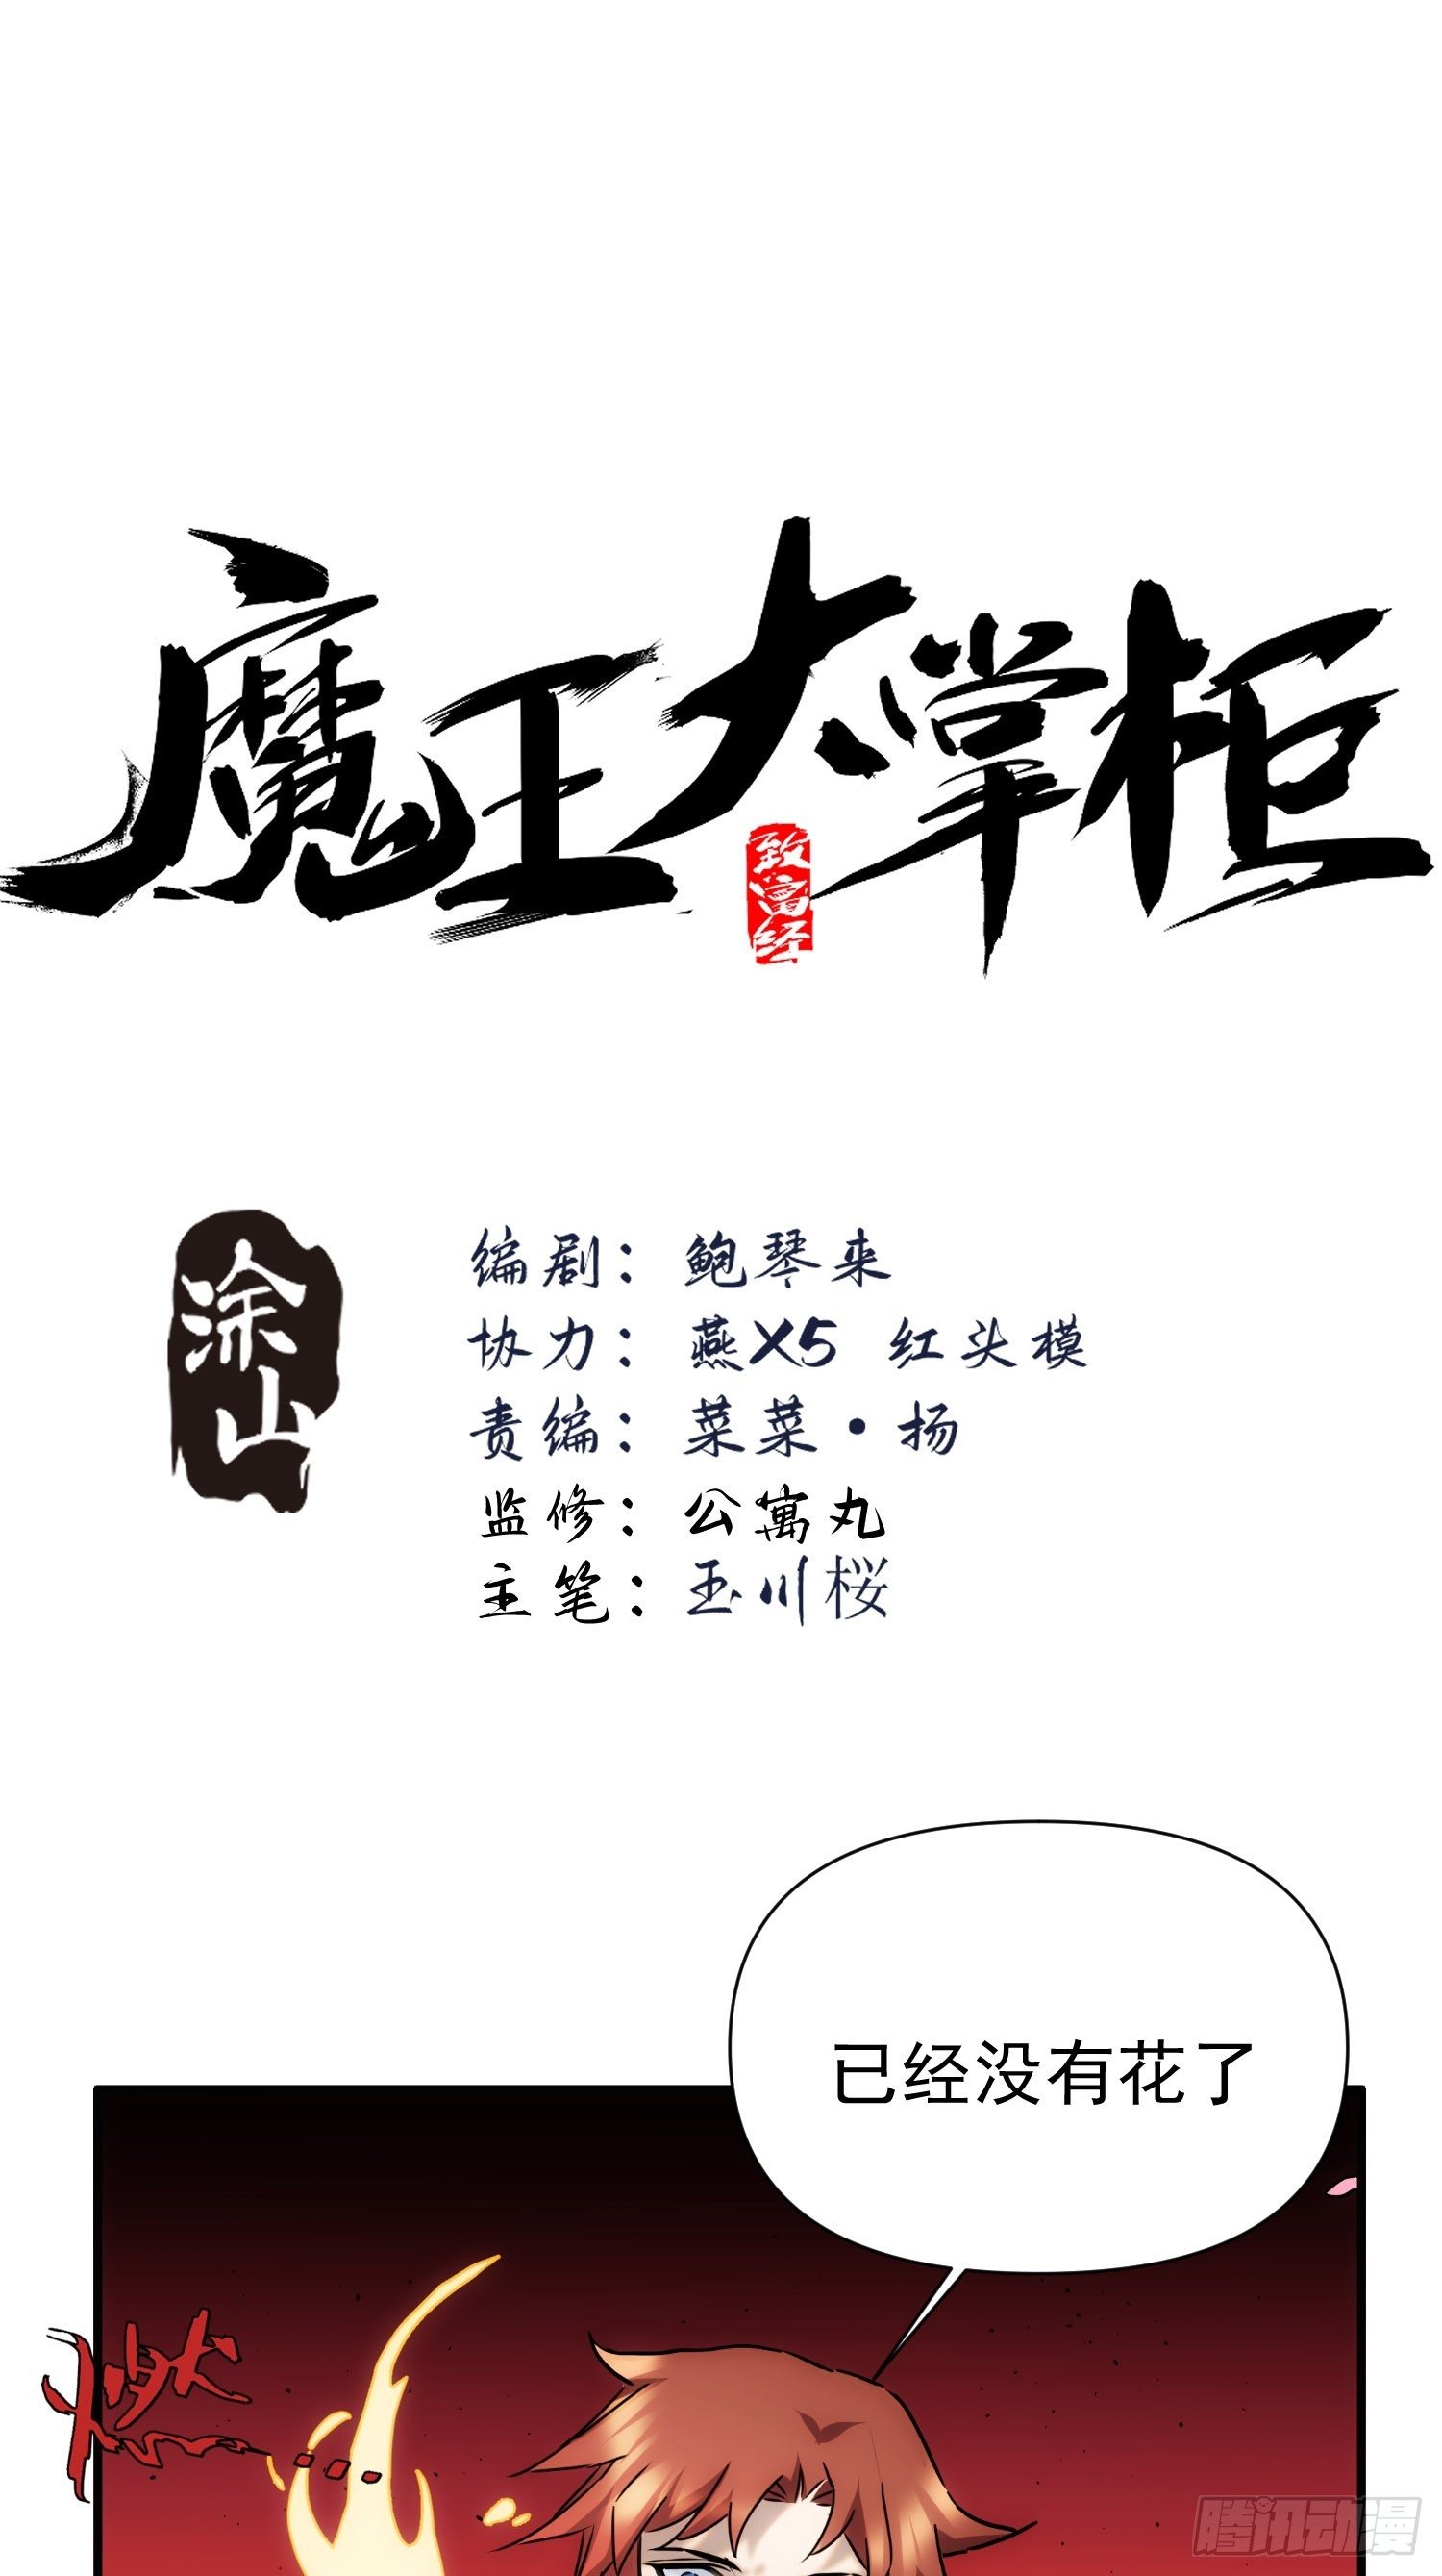 魔王大掌柜
致富经
涂山
编剧：鲍琴来
协力：燕X5 红头模
责编：菜菜·扬
监修：公寓丸
主笔：玉川桜
已经没有花了
燃
腾讯动漫